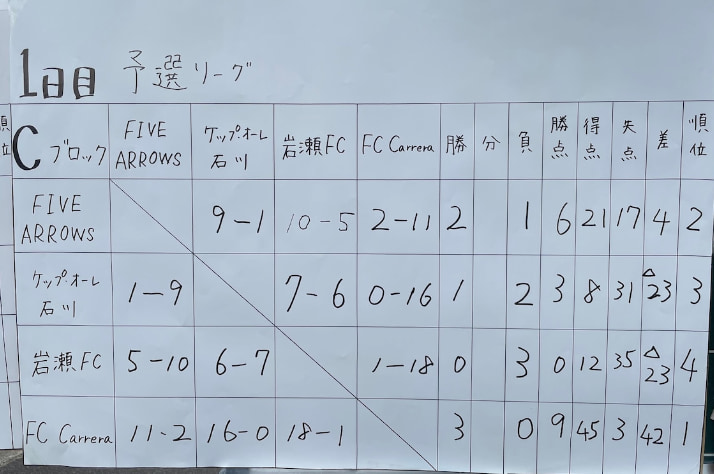 1日目 予選リーグ
Cブロック FIVE ARROWS ケップオーレ石川 岩瀬FC FC Carrera 勝 分 負 勝点 得点 失点 差 順位
FIVE ARROWS 9-1 10-5 2-11 2 1 6 21 17 4 2
ケップ・オーレ石川 1-9 7-6 0-16 1 2 3 8 31 △23 3
岩瀬FC 5-10 6-7 1-18 0 3 0 12 35 △23 4
FC Carrera 11-2 16-0 18-1 3 0 9 45 3 42 1
順位